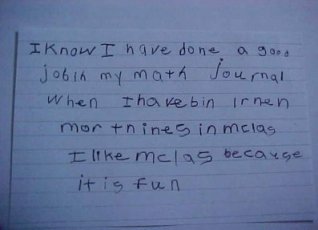 I Know I have done a good
job in my math Journal
when I have bin lrnen
mor tnines in mclas
I like mclas becauye
it is fun